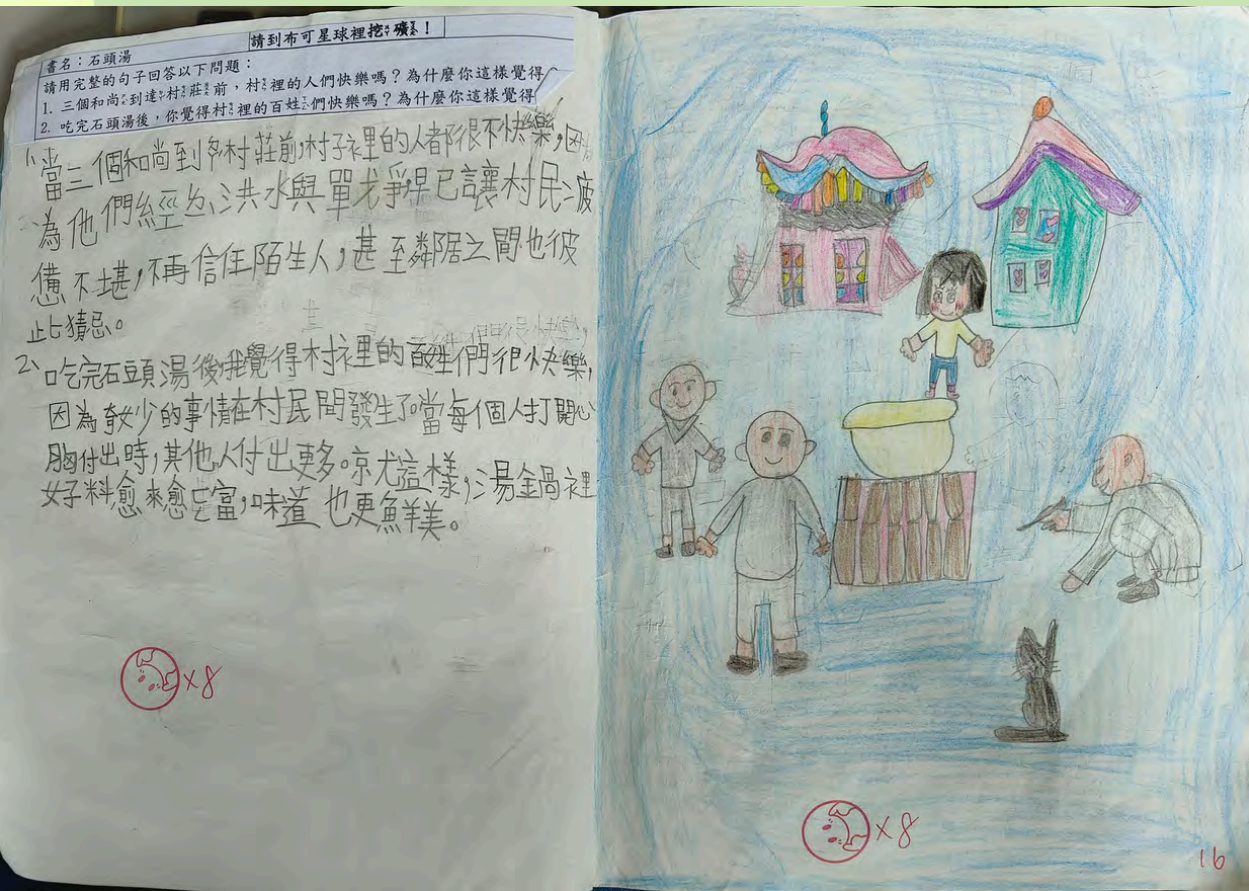 請到布可星球裡挖礦！
書名：石頭湯
請用完整的句子回答以下問題：
1. 三個和尚到達村莊前，村裡的人們快樂嗎？為什麼你這樣覺得
2. 吃完石頭湯後，你覺得村裡的百姓們快樂嗎？為什麼你這樣覺得
1、當三個和尚到多村莊前，村子裡的人都很不快樂，因
為他們經歷洪水與戰爭早已讓村民疲
憊不堪，不再信任陌生人，甚至鄰居之間也彼
此猜忌。
2、吃完石頭湯後，我覺得村裡的百姓們很快樂，
因為奇妙的事情在村民間發生了。當每個人打開心
胸付出時，其他人付出更多。就這樣，湯鍋裡
好料愈來愈豐富，味道也更鮮美。
x8
x8
16